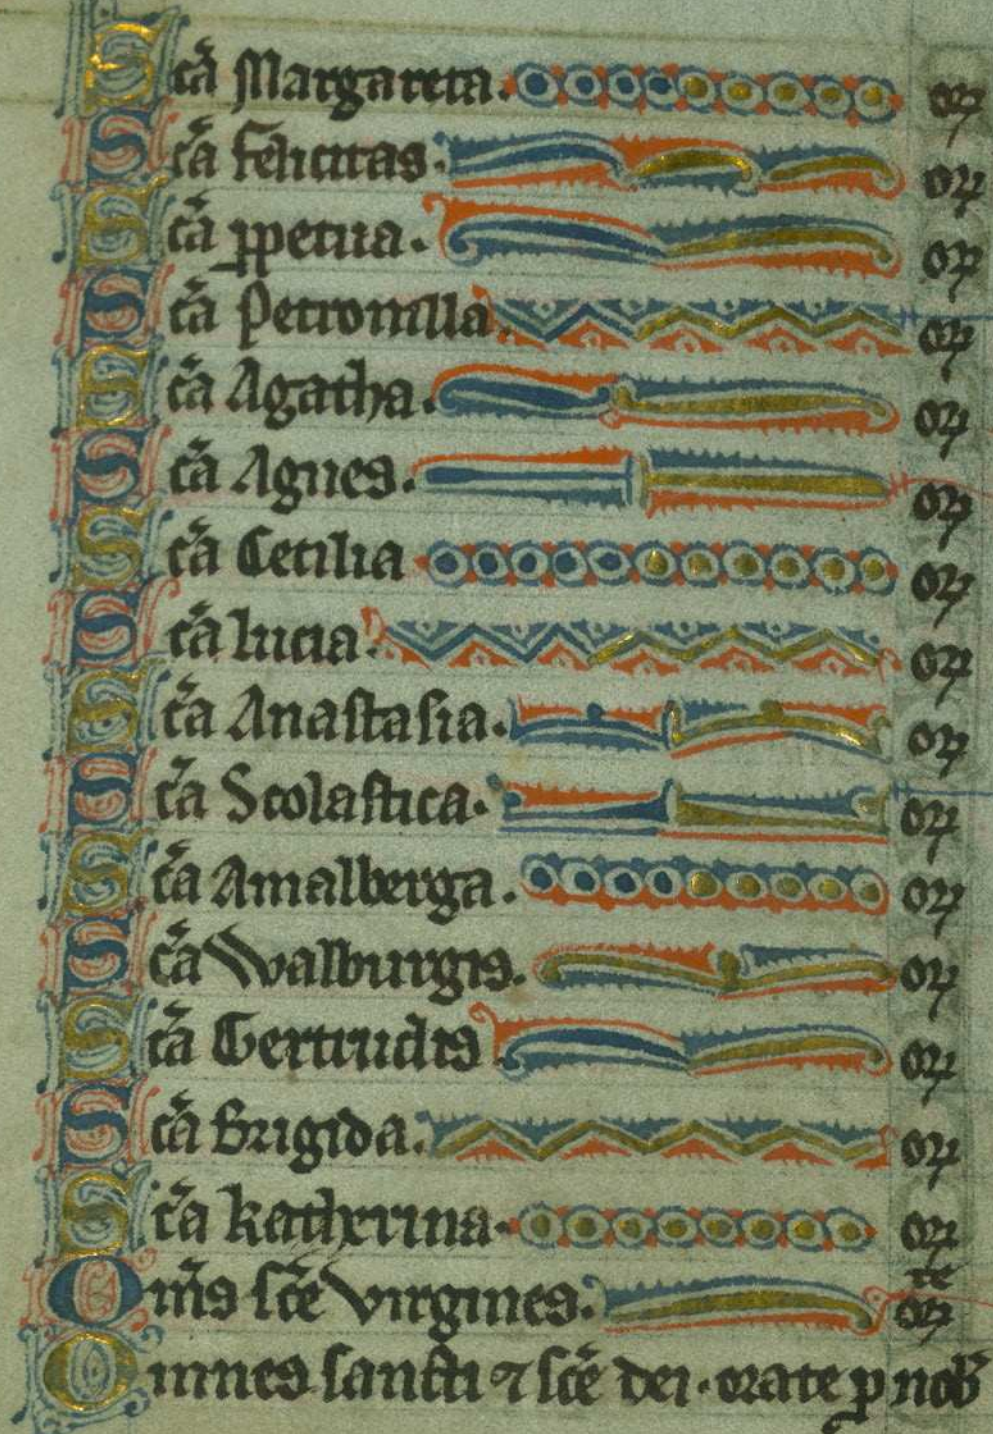 Scā Margareta. oꝝ
Scā felicitas. oꝝ
Scā ꝑpetua. oꝝ
Scā Petronilla. oꝝ
Scā Agatha. oꝝ
Scā Agnes. oꝝ
Scā Cecilia oꝝ
Scā lucia. oꝝ
Scā Anaſtaſia. oꝝ
Scā Scolaſtica. oꝝ
Scā Amalberga. oꝝ
Scā Walburgis. oꝝ
Scā Gertrudis oꝝ
Scā Brigida. oꝝ
Scā katherina. oꝝ
Om̄s ſcē virgines. orate
Omnes ſancti ⁊ ſcē dei. orate ꝓ nob̄